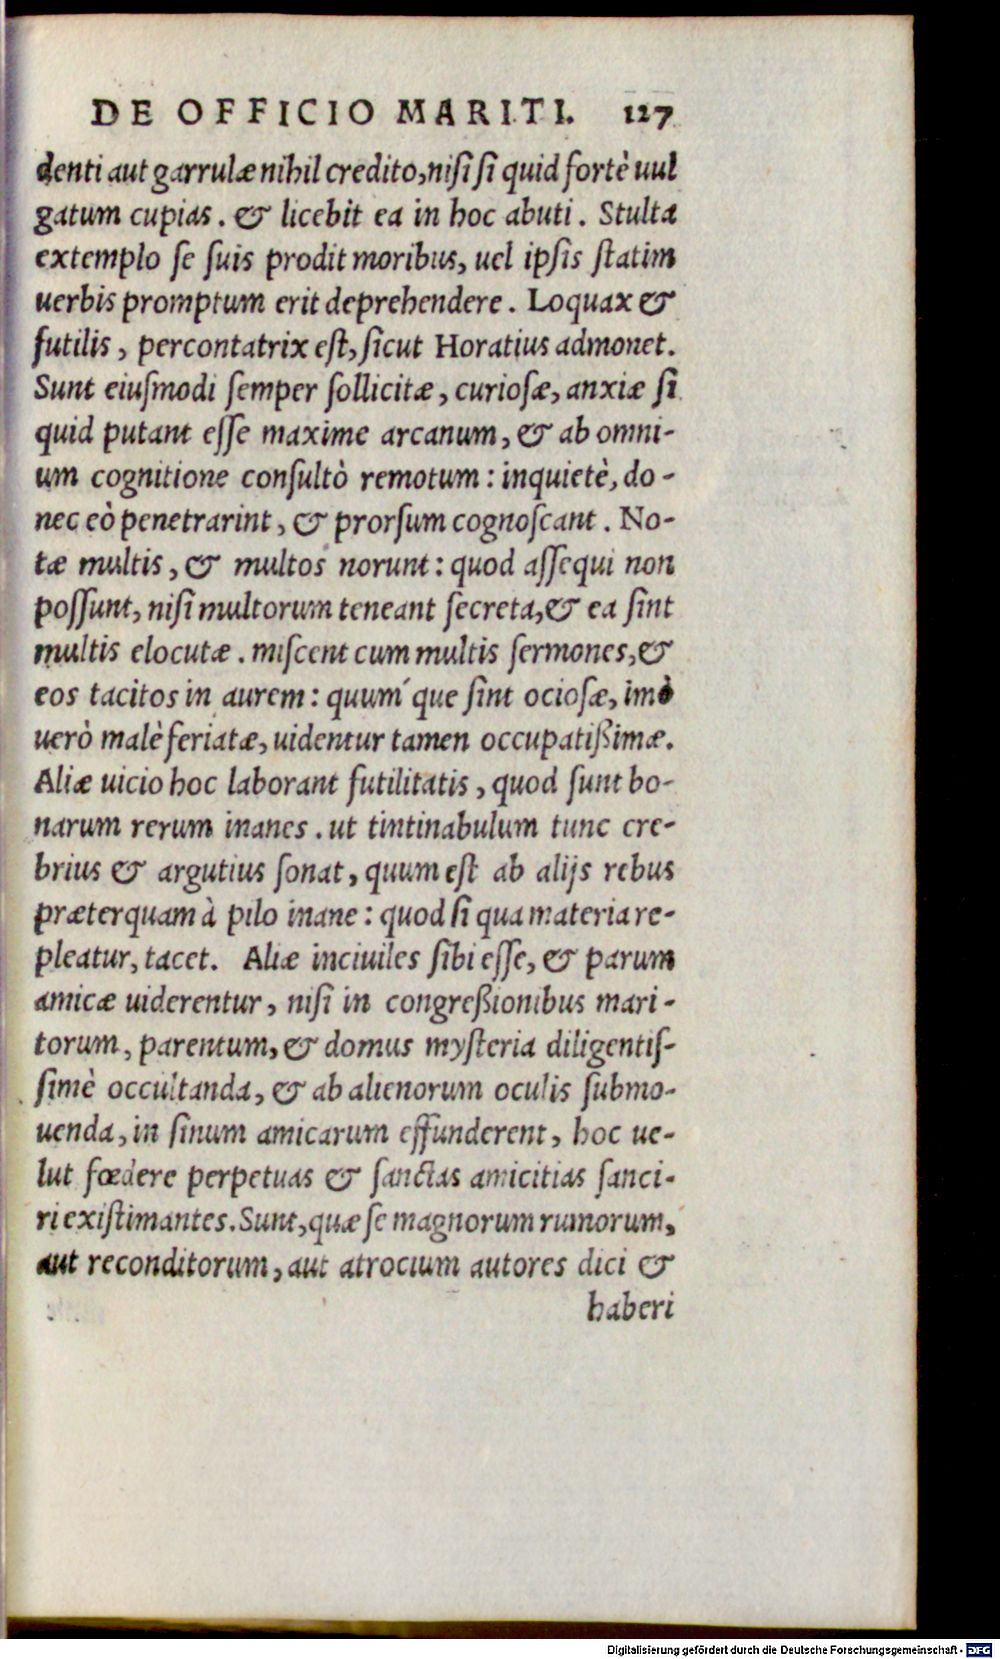 DE OFFICIO MARITI. 127
denti aut garrulæ nihil credito, nisi si quid fortè uul
gatum cupias. & licebit ea in hoc abuti. Stulta
extemplo se suis prodit moribus, uel ipsis statim
uerbis promptum erit deprehendere. Loquax &
futilis, percontatrix est, sicut Horatius admonet.
Sunt eiusmodi semper sollicitæ, curiosæ, anxiæ si
quid putant esse maxime arcanum, & ab omni-
um cognitione consultò remotum: inquietè, do-
nec eò penetrarint, & prorsum cognoscant. No-
tæ multis, & multos norunt: quod assequi non
possunt, nisi multorum teneant secreta, & ea sint
multis elocutæ. miscent cum multis sermones, &
eos tacitos in aurem: quum´que sint ociosæ, imò
uerò malè feriatæ, uidentur tamen occupatißimæ.
Aliæ uicio hoc laborant futilitatis, quod sunt bo-
narum rerum inanes. ut tintinabulum tunc cre-
brius & argutius sonat, quum est ab alijs rebus
præterquam à pilo inane: quod si qua materia re-
pleatur, tacet. Aliæ inciuiles sibi esse, & parum
amicæ uiderentur, nisi in congreßionibus mari-
torum, parentum, & domus mysteria diligentis-
simè occultanda, & ab alienorum oculis submo-
uenda, in sinum amicarum effunderent, hoc ue-
lut fœdere perpetuas & sanctas amicitias sanci-
ri existimantes. Sunt, quæ se magnorum rumorum,
aut reconditorum, aut atrocium autores dici &
haberi
Digitalisierung gefördert durch die Deutsche Forschungsgemeinschaft - DFG